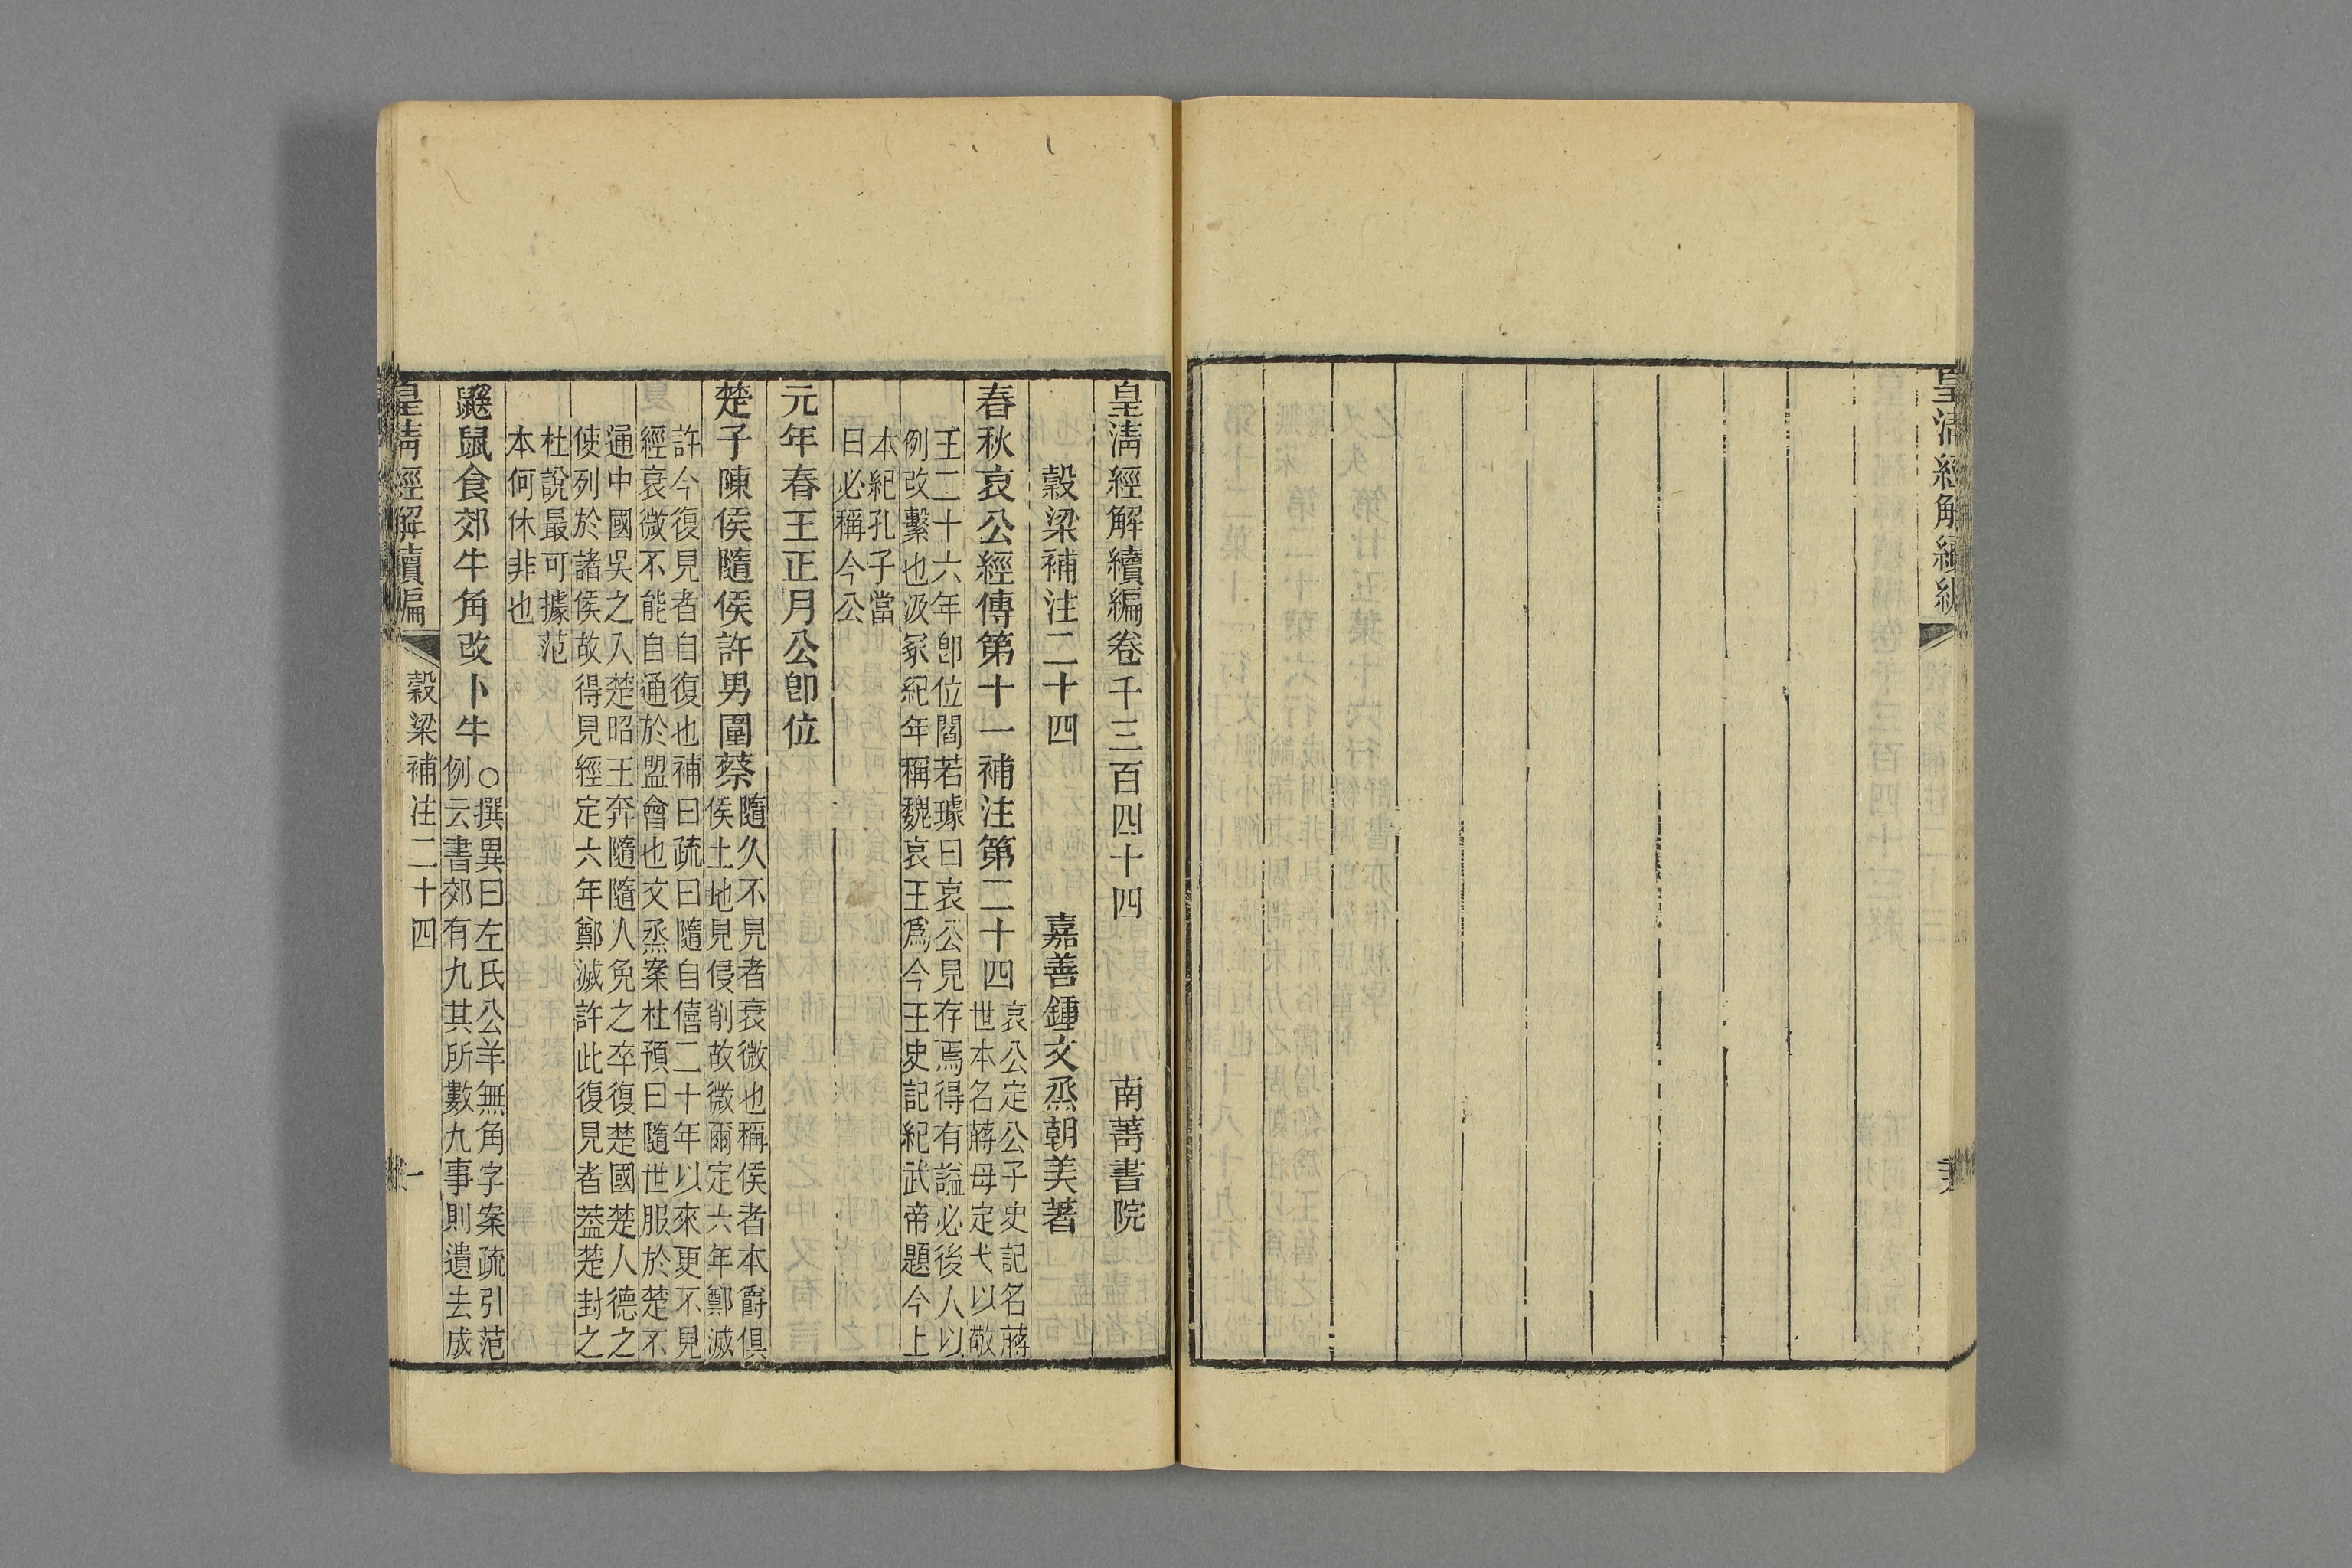 皇清經解續編
皇清經解續編卷千三百四十四　南菁書院
穀梁補注二十四　嘉善鍾文烝朝美著
春秋哀公經傳第十一補注第二十四
哀公定公子史記名蔣
世本名蔣母定弋以敬
王二十六年卽位閻若璩曰哀公見存焉得有謚必後人以
例改繫也汲冢紀年稱魏哀王爲今王史記紀武帝題今上
本紀孔子當
日必稱今公
元年春王正月公卽位
楚子陳侯隨侯許男圍蔡
隨久不見者衰微也稱侯者本爵俱
侯土地見侵削故微爾定六年鄭滅
許今復見者自復也補曰疏曰隨自僖二十年以來更不見
經衰微不能自通於盟會也文烝案杜預曰隨世服於楚不
通中國吳之入楚昭王奔隨隨人免之卒復楚國楚人德之
使列於諸侯故得見經定六年鄭滅許此復見者葢楚封之
杜說最可據范
本何休非也
鼷鼠食郊牛角改卜牛
○撰異曰左氏公羊無角字案疏引范
例云書郊有九其所數九事則遺去成
皇清經解續編　穀梁補注二十四　一